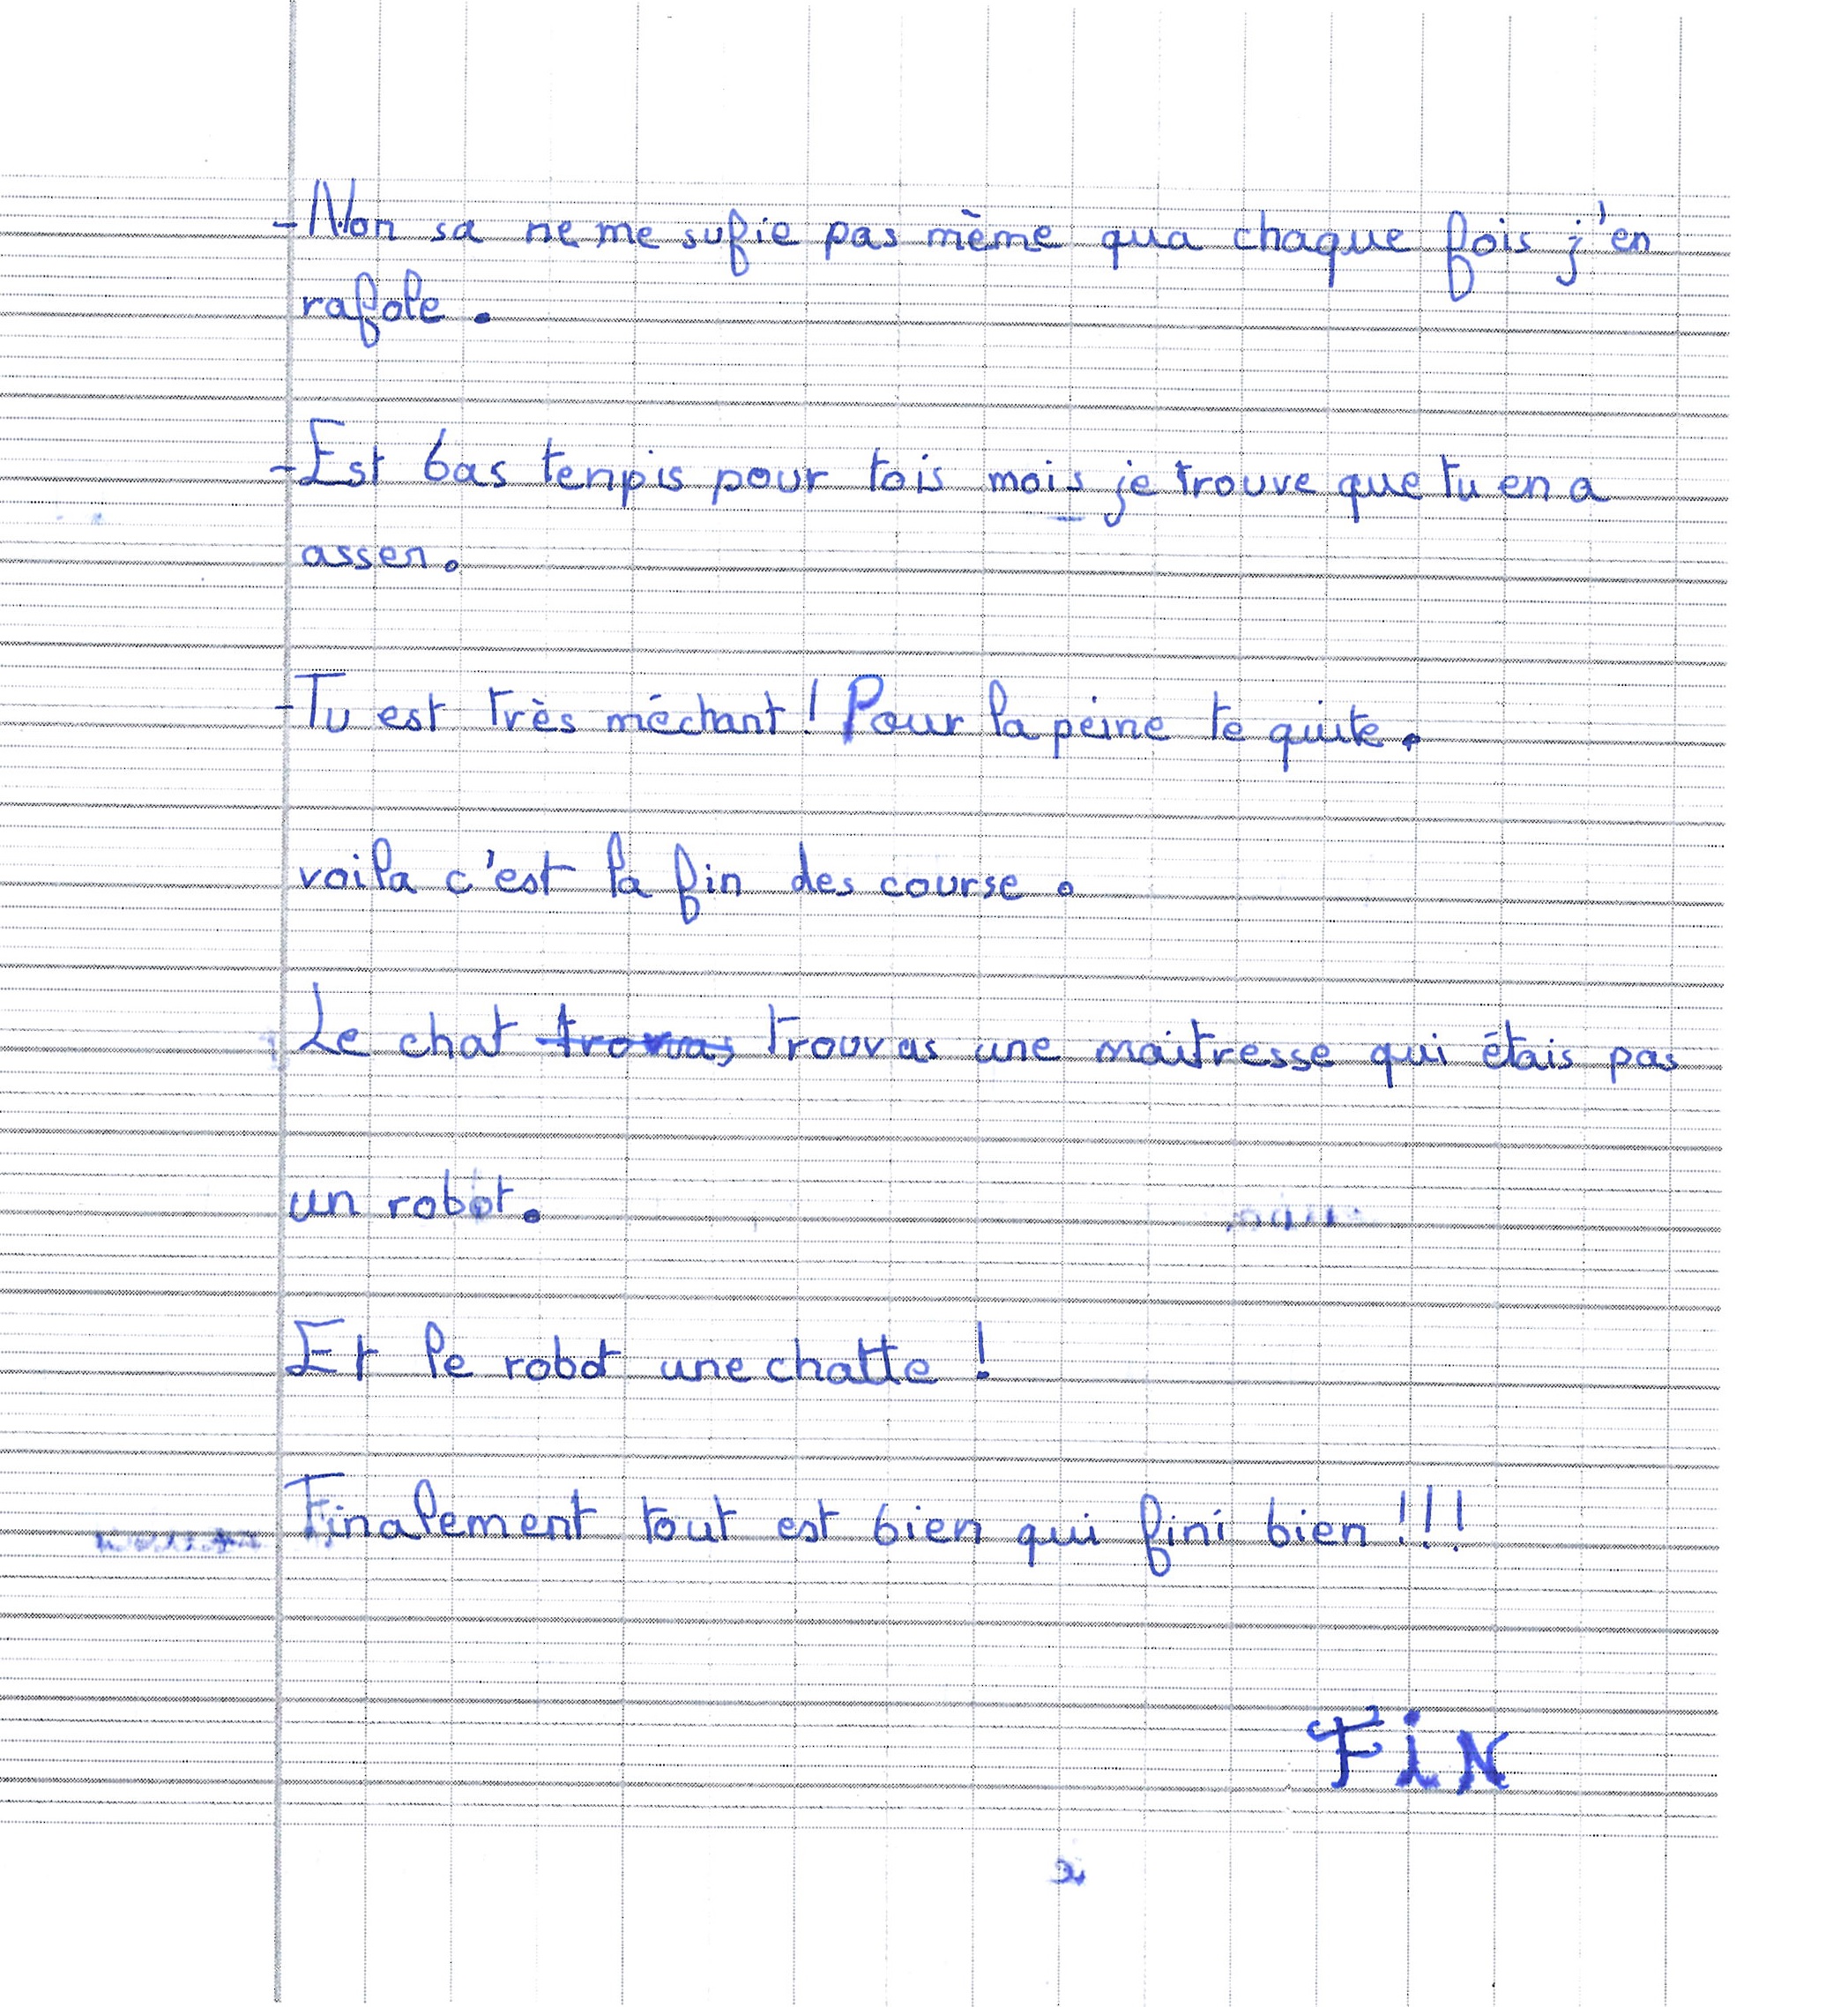 -Non sa ne me sufie pas mème qua chaque fois j'en
rafole.
-Est bas tenpis pour tois mois je trouve que tu en a
assen.
-Tu est très méchant ! Pour la peine te quite.
voila c'est la fin des course.
Le chat trouvas une maitresse qui étais pas
un robot.
Et le robot une chatte !
Finalement tout est bien qui fini bien !!!
FiN